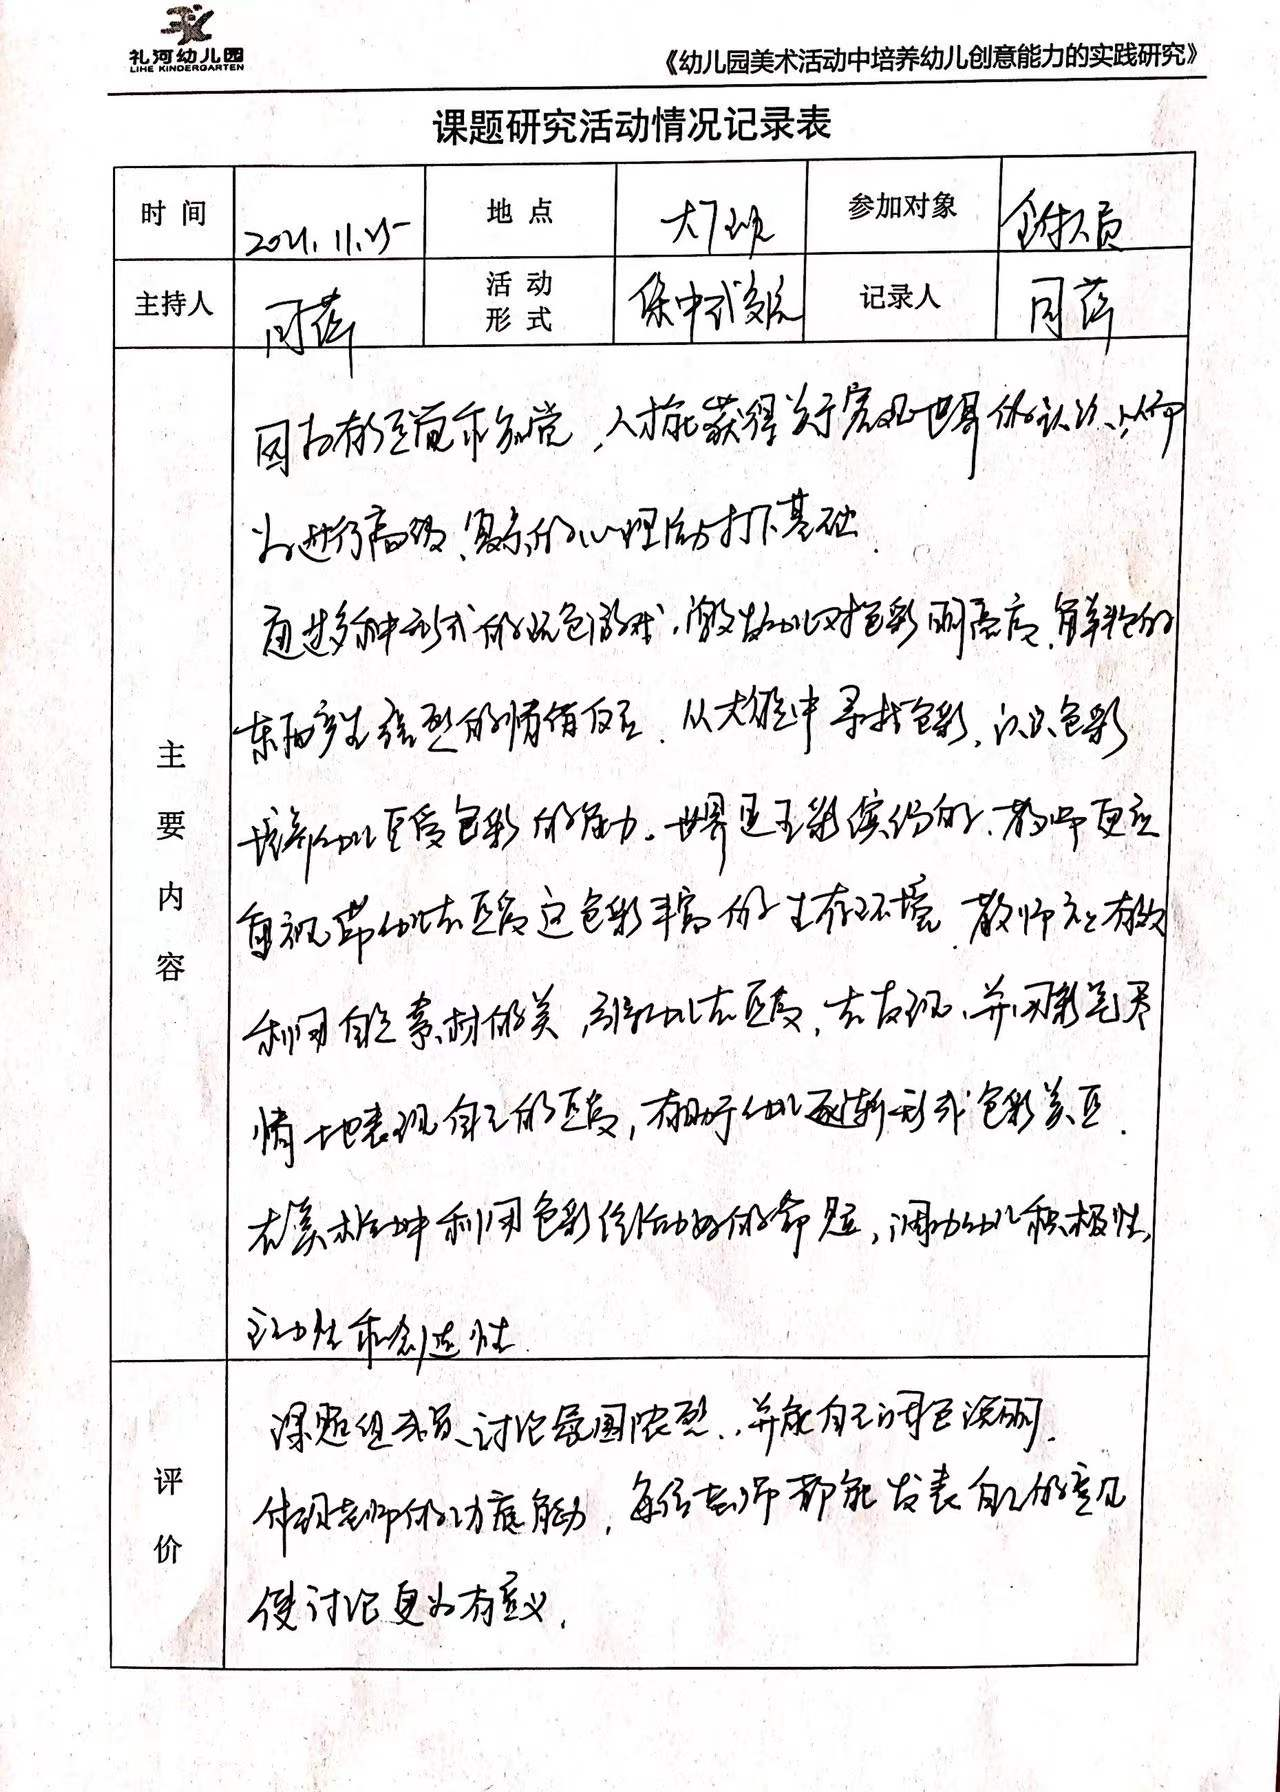 礼河幼儿园
LIHE KINDERGARTEN
《幼儿园美术活动中培养幼儿创意能力的实践研究》
课题研究活动情况记录表
时 间 2021.11.25 地 点 大厅 参加对象 全体人员
主持人 活动形式 集中式 记录人
主要内容
因为有 和知觉,人才能获得关于客观世界的认识,从而
为进行高级、复杂的心理活动打下基础.
通过多种形式的玩色游戏,激发幼儿对色彩明亮度、鲜艳的
东西产生强烈的情绪反应.从大自然中寻找色彩,认识色彩
培养幼儿感受色彩的能力。世界是五彩缤纷的,教师更应
重视带幼儿去感受这色彩丰富的生存环境.教师应有效
利用自然素材的美,引导幼儿去感受,去发现,并用彩笔尽
情地表现自己的感受,有助于幼儿逐渐形成色彩美感.
在美术活动中利用色彩 活动 的 ,调动幼儿积极性,
主动性和创造性.
评价
课题组成员讨论氛围浓烈.,并能 自己 说明.
体现老师的功底能力,每位老师都能发表自己的意见
使讨论更为有意义.